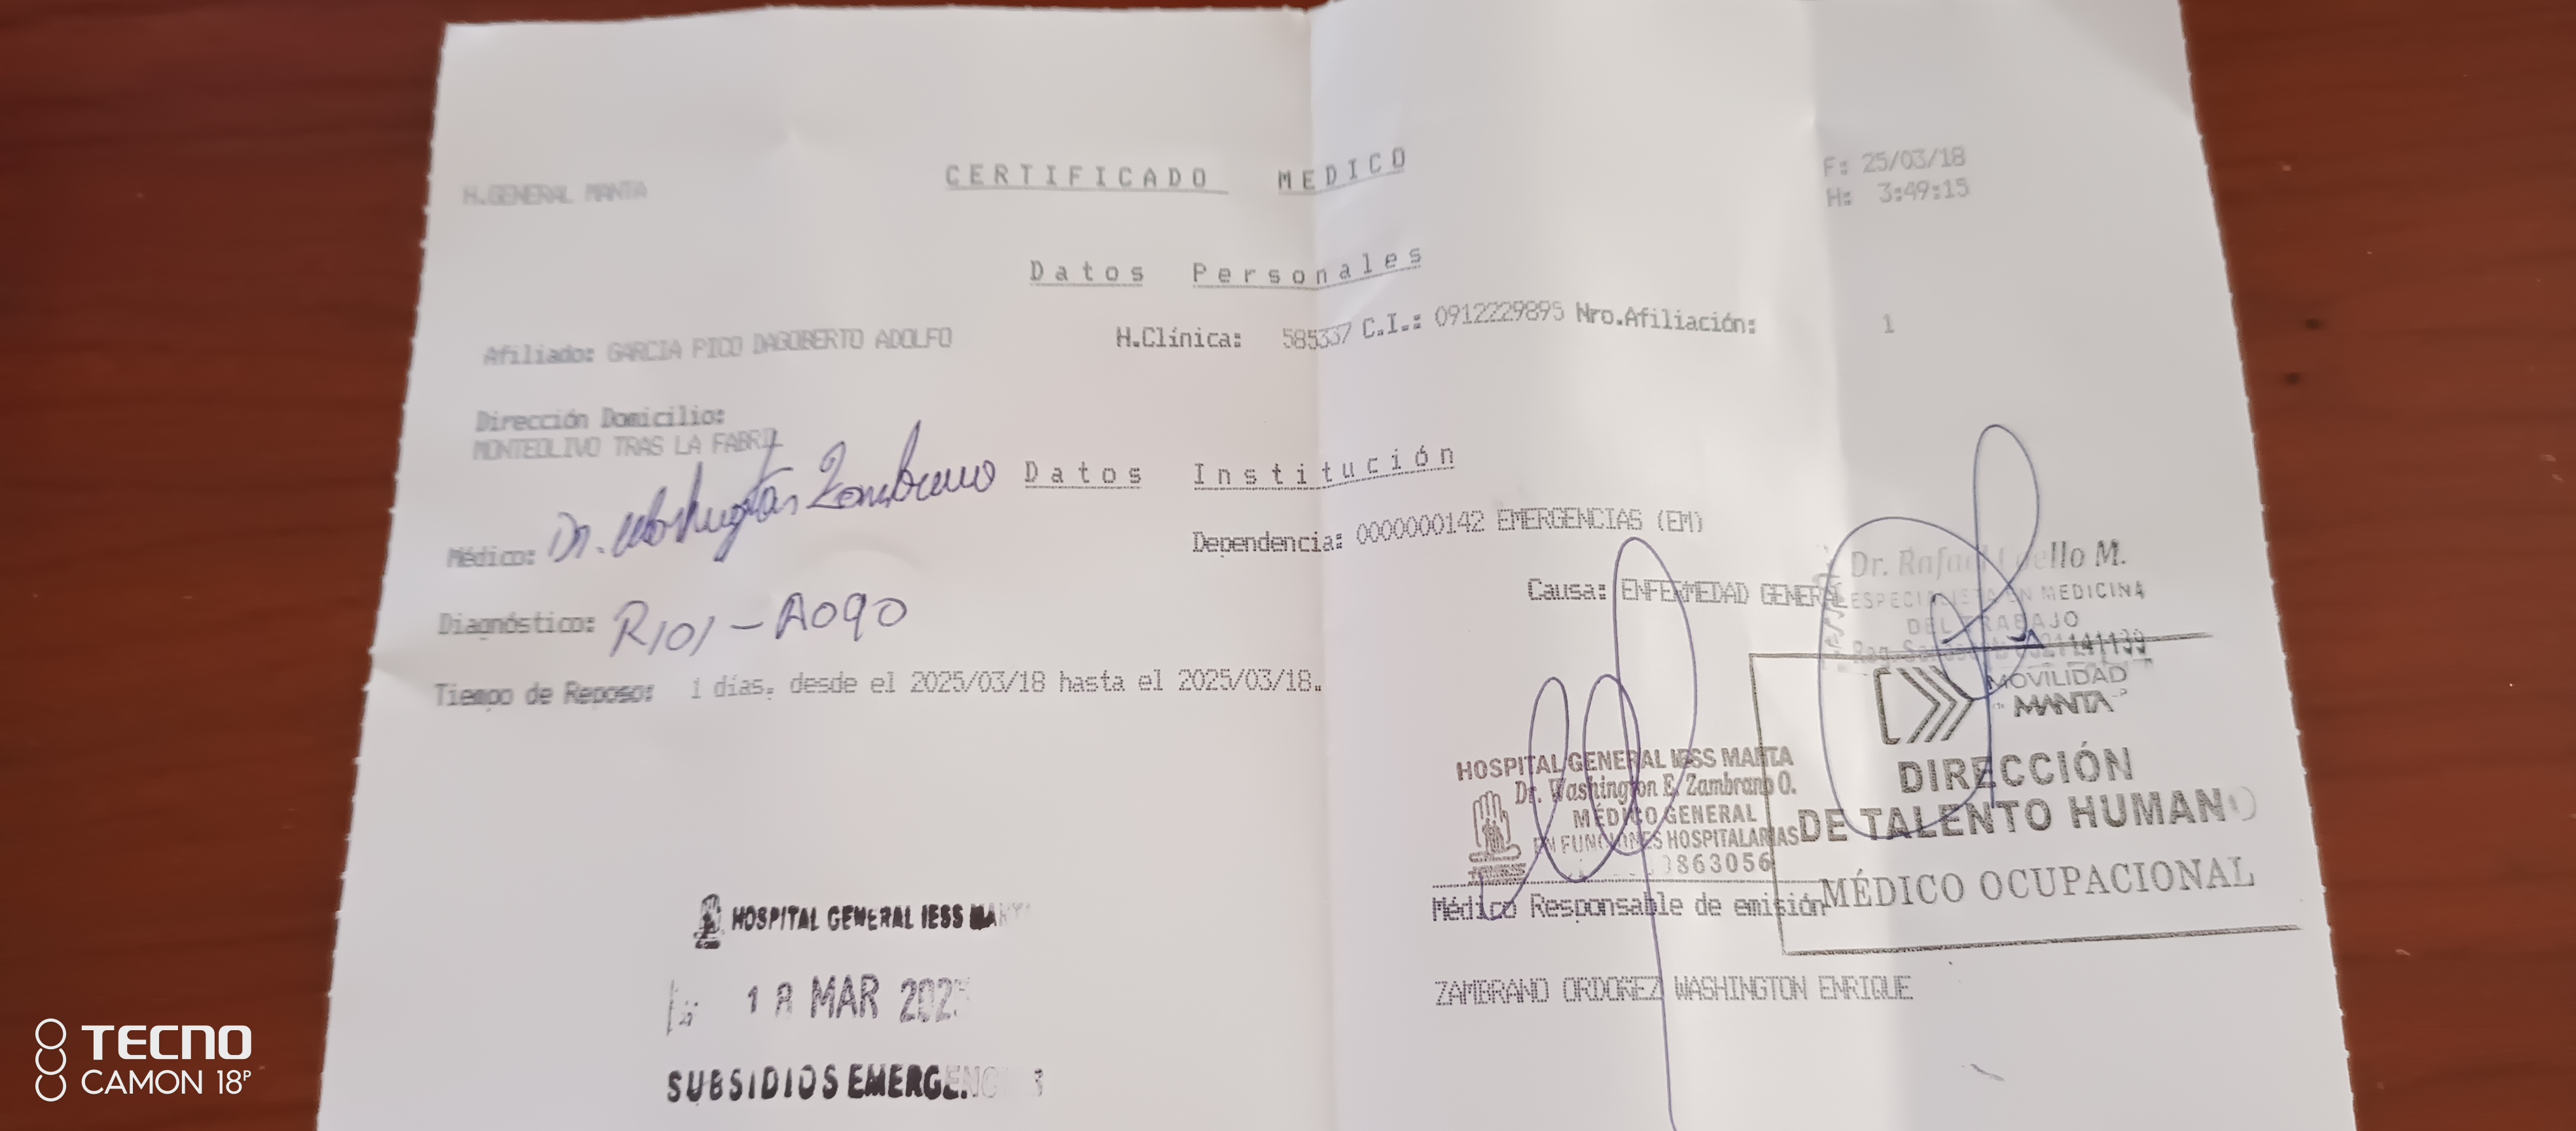 H.GENERAL MANTA
CERTIFICADO MEDICO
F: 25/03/18
H: 3:49:15
Datos Personales
Afiliado: GARCIA PICO DAGOBERTO ADOLFO H.Clínica: 585337 C.I.: 0912229895 Nro.Afiliación: 1
Dirección Domicilio:
MONTEOLIVO TRAS LA FABRI
Datos Institución
Médico: Dr. Washington Zambrano Dependencia: 0000000142 EMERGENCIAS (EM)
Diagnóstico: R101 - A090 Causa: ENFERMEDAD GENERAL
Tiempo de Reposo: 1 días, desde el 2025/03/18 hasta el 2025/03/18.
Dr. Rafael M.
ESPECIALISTA EN MEDICINA
DEL TRABAJO
MOVILIDAD
de MANTA EP
DIRECCIÓN
DE TALENTO HUMANO
MÉDICO OCUPACIONAL
HOSPITAL GENERAL IESS MANTA
Dr. Washington E. Zambrano O.
MÉDICO GENERAL
EN FUNCIONES HOSPITALARIAS
863056
Médico Responsable de emisión
ZAMBRANO ORDOÑEZ WASHINGTON ENRIQUE
HOSPITAL GENERAL IESS MANTA
18 MAR 2025
SUBSIDIOS EMERGENCIAS
TECNO
CAMON 18P